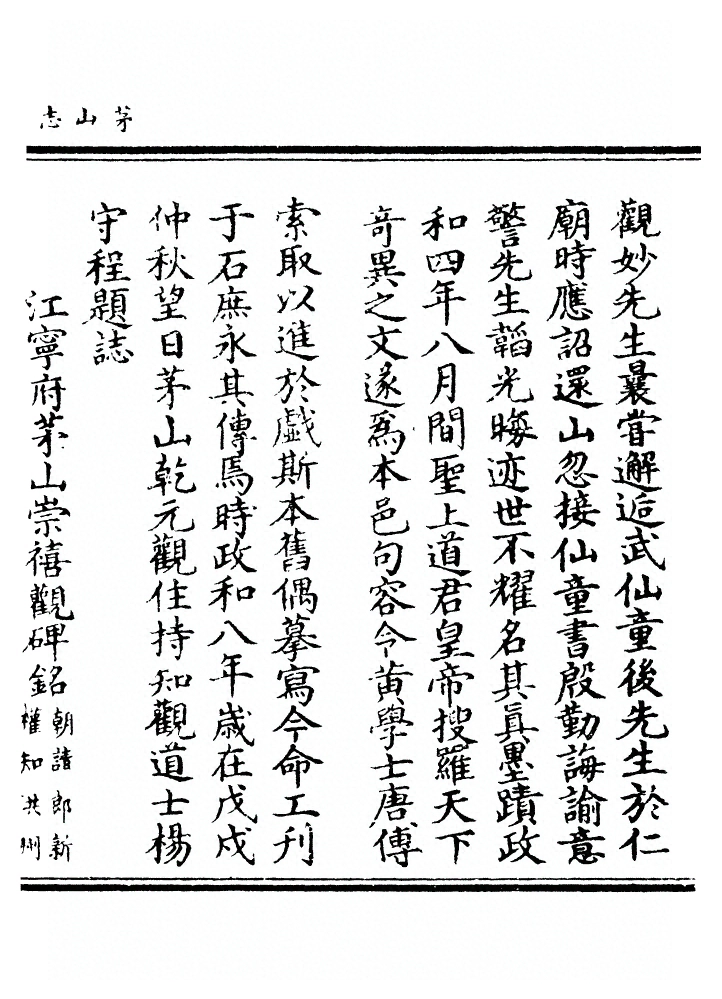 茅山志
觀妙先生曩嘗邂逅武仙童後先生於仁
廟時應詔還山忽接仙童書殷勤誨諭意
警先生韜光晦迹世不耀名其真墨蹟政
和四年八月間聖上道君皇帝搜羅天下
竒異之文遂爲本邑句容令黄學士唐傳
索取以進於戯斯本舊偶摹寫今命工刋
于石庶永其傳焉時政和八年歳在戊戌
仲秋望日茅山乾元觀住持知觀道士楊
守程題誌
江寧府茅山崇禧觀碑銘 朝請郎新
權知洪州